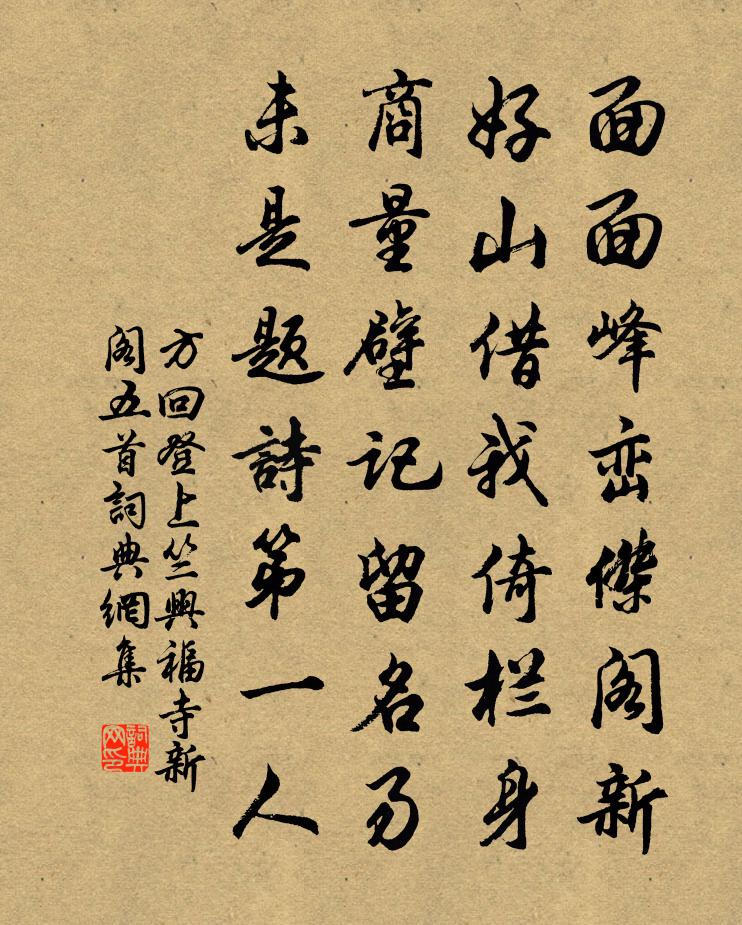 面面峰峦傑阁新
好山借我倚栏身
商量壁记留名易
未是题詩第一人
方回登上竺興福寺新
阁五首詞典網集
詞典
网印